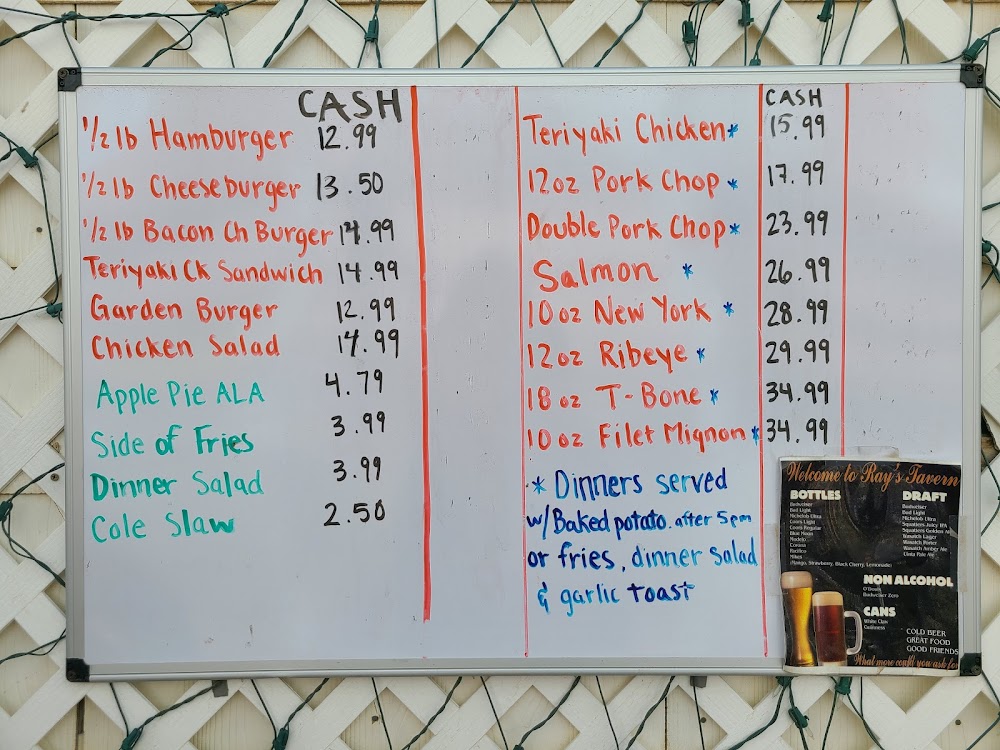 CASH
1/2 lb Hamburger 12.99
1/2 lb Cheeseburger 13.50
1/2 lb Bacon Ch Burger 14.99
Teriyaki Ck Sandwich 14.99
Garden Burger 12.99
Chicken Salad 14.99
Apple Pie ALA 4.79
Side of Fries 3.99
Dinner Salad 3.99
Cole Slaw 2.50
CASH
Teriyaki Chicken* 15.99
12oz Pork Chop * 17.99
Double Pork Chop* 23.99
Salmon * 26.99
10 oz New York * 28.99
12oz Ribeye * 29.99
18 oz T-Bone * 34.99
10 oz Filet Mignon* 34.99
* Dinners served
w/Baked potato. after 5pm
or fries, dinner salad
& garlic toast
Welcome to Ray's Tavern
BOTTLES
Budweiser
Bud Light
Michelob Ultra
Coors Light
Coors Regular
Blue Moon
Modelo
Corona
Pacifico
Mikes
(Mango, Strawberry, Black Cherry, Lemonade)
DRAFT
Budweiser
Bud Light
Michelob Ultra
Squatters Juicy IPA
Squatters Golden Ale
Wasatch Lager
Wasatch Porter
Wasatch Amber Ale
Uinta Pale Ale
NON ALCOHOL
O'Douls
Budweiser Zero
CANS
White Claw
Guinness
COLD BEER
GREAT FOOD
GOOD FRIENDS
What more could you ask for